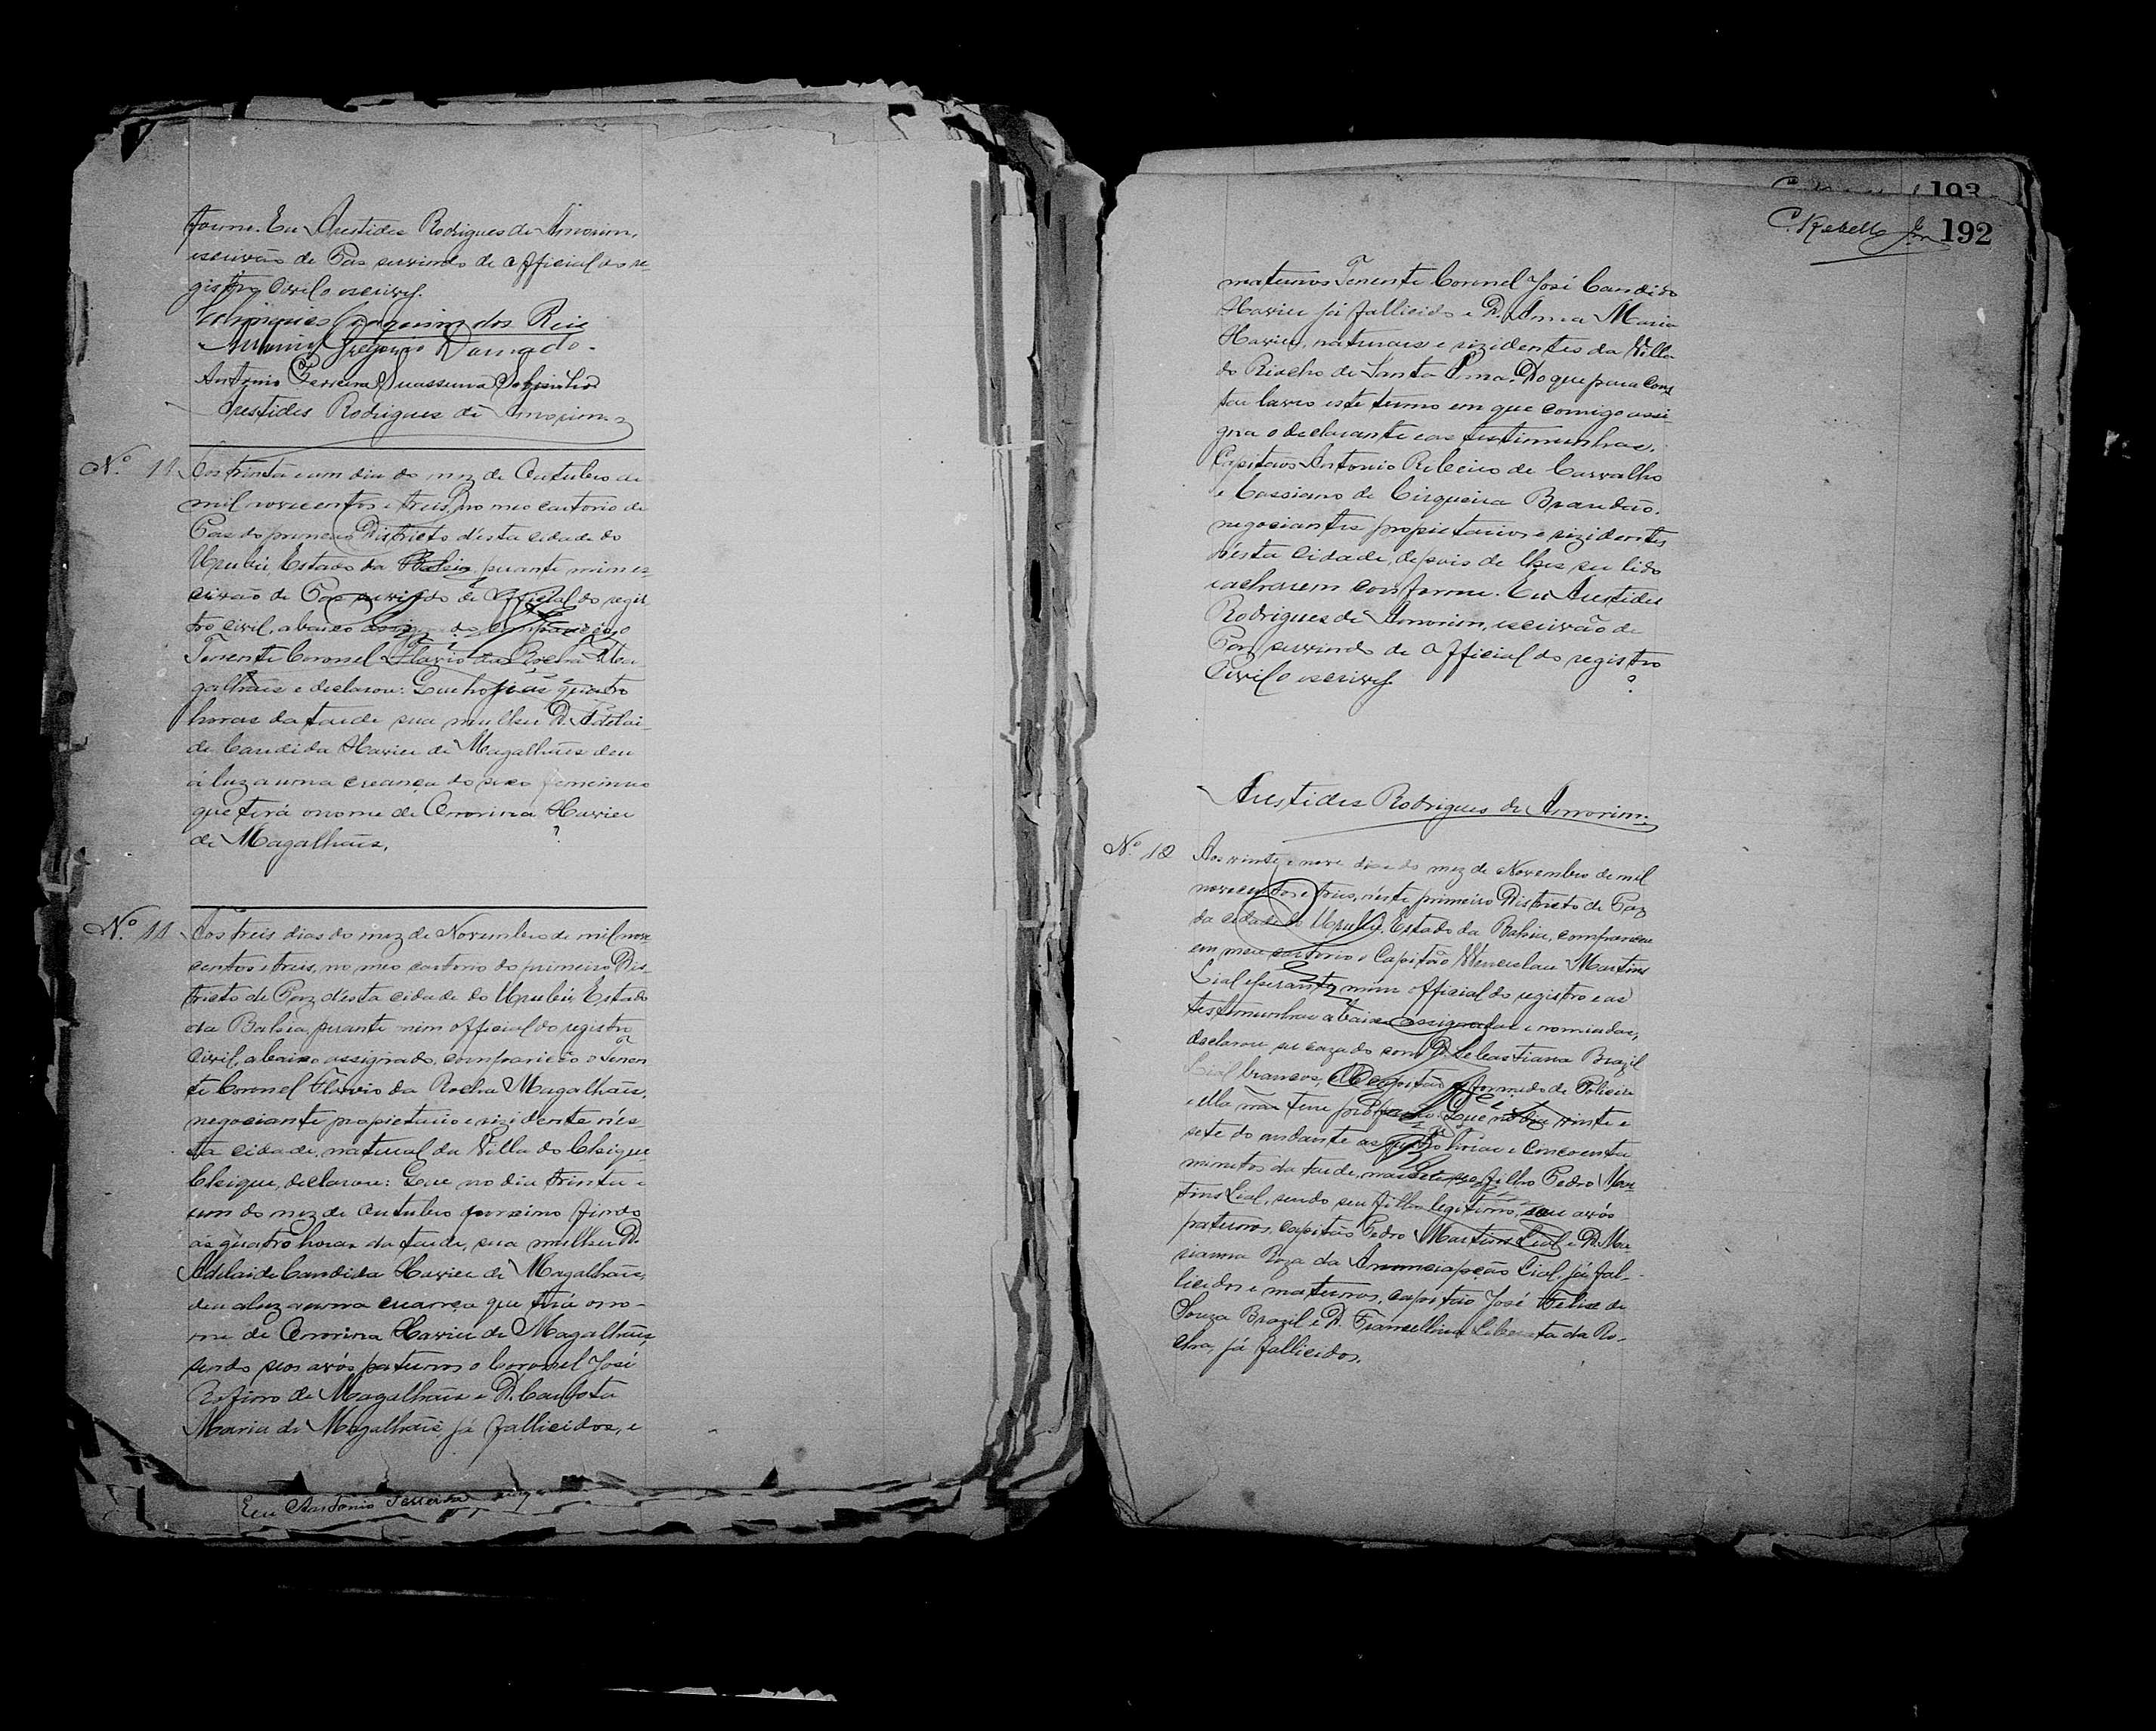 forme. Eu Aristides Rodrigues de Amorim,
escrivão de Paz servindo de official do re-
gistro Civil o escrevy.
Joaquim dos Reis
Antonio Gregorio Dourado.
Antonio Ferreira Suassuna Sobrinho
Aristides Rodrigues de Amorim
Nº 11 Aos trinta e um dia do mez de Outubro de
mil novecentos e treis, no meo cartorio de
Paz do primeiro Districto d'esta cidade do
Urubú, Estado da Bahia, perante mim es-
crivão de Paz servindo de official do regis-
tro civil, abaixo assignado compareceo o
Tenente Coronel Flavio da Rocha Ma-
galhães e declarou: Que hoje ás quatro
horas da tarde sua mulher D. Adelai-
de Candida Xavier de Magalhães deu
á luz a uma creança do sexo femenino
que terá o nome de Amorina Xavier
de Magalhães.
Nº 11 Aos treis dias do mez de Novembro de mil nove
centos e treis, no meo cartorio do primeiro Dis-
tricto de Paz d'esta cidade do Urubú, Estado
da Bahia, perante mim official do registro
Civil, abaixo assignado, compareceo o Tenen
te Coronel Flavio da Rocha Magalhães,
negociante propietario e rezidente n'es-
ta cidade, natural da Villa do Chique
Chique, declarou: Que no dia trinta e
um do mez de Outubro proximo findo
ás quatro horas da tarde, sua mulher D.
Adelaide Candida Xavier de Magalhães,
deu a luz a uma creança que terá o no-
me de Amorina Xavier de Magalhães,
sendo seos avós paternos o Coronel José
Rofino de Magalhães e D. Carlota
Maria de Magalhães já fallicidos, e
Eu Antonio Ferreira
193
C. Rebello Jor 192
maternos Tenente Coronel José Candido
Xavier já fallicido e D. Anna Maria
Xavier, naturaes e rezidentes da Villa
do Riacho de Santa Anna. Do que para cons
tar lavro este termo em que comigo assi
gna o declarante e as testimunhas,
Capitães Antonio Ribeiro de Carvalho
e Cassiano de Cirqueira Brandão,
negociantes propietarios e rezidentes
n'esta Cidade, depois de lhes ser lido
e acharem conforme. Eu Aristides
Rodrigues de Amorim, escrivão de
Paz servindo de official do registro
Civil o escrevy.
Aristides Rodrigues de Amorim.
Nº 12 Aos vinte e nove dias do mez de Novembro de mil
novecentos e treis, n'este primeiro Districto de Paz
da cidade do Urubú, Estado da Bahia, compareceu
em meu cartorio o Capitão Wenceslau Martins
Lial e perante mim official do registro e as
testimunhas abaixo assignadas e nomiadas,
declarou ser cazado com D. Sebastiana Brazil
Lial brancos, elle capitão reformado de Policia
e ella não tem profissão: Que no dia vinte e
sete do andante as quatro horas e cincoenta
minutos da tarde, nasceu seo filho Pedro Mar-
tins Lial, sendo seu filho legitimo, seus avós
paternos, capitão Pedro Martins Lial e D. Ma-
rianna Roza da Annunciapção Lial, já fal-
licidos e maternos, capitão José Felix de
Souza Brazil e D. Francellina Liberata da Ro-
cha, já fallicidos.